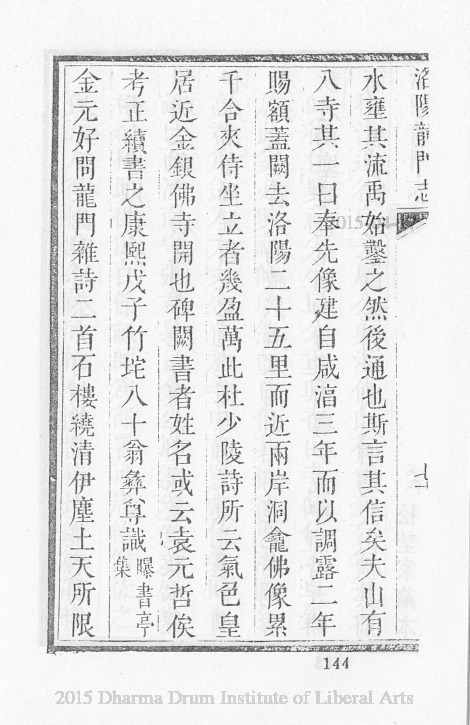 洛陽龍門志
水壅其流禹始鑿之然後通也斯言其信矣夫山有
八寺其一曰奉先像建自咸淊三年而以調露二年
賜額蓋闕去洛陽二十五里而近兩岸洞龕佛像累
千合夾侍坐立者幾盈萬此杜少陵詩所云氣色皇
居近金銀佛寺開也碑闕書者姓名或云袁元哲俟
考正續書之康熙戊子竹垞八十翁彝尊識曝書亭集
金元好問龍門雜詩二首石樓繞清伊塵土天所限
144
2015 Dharma Drum Institute of Liberal Arts